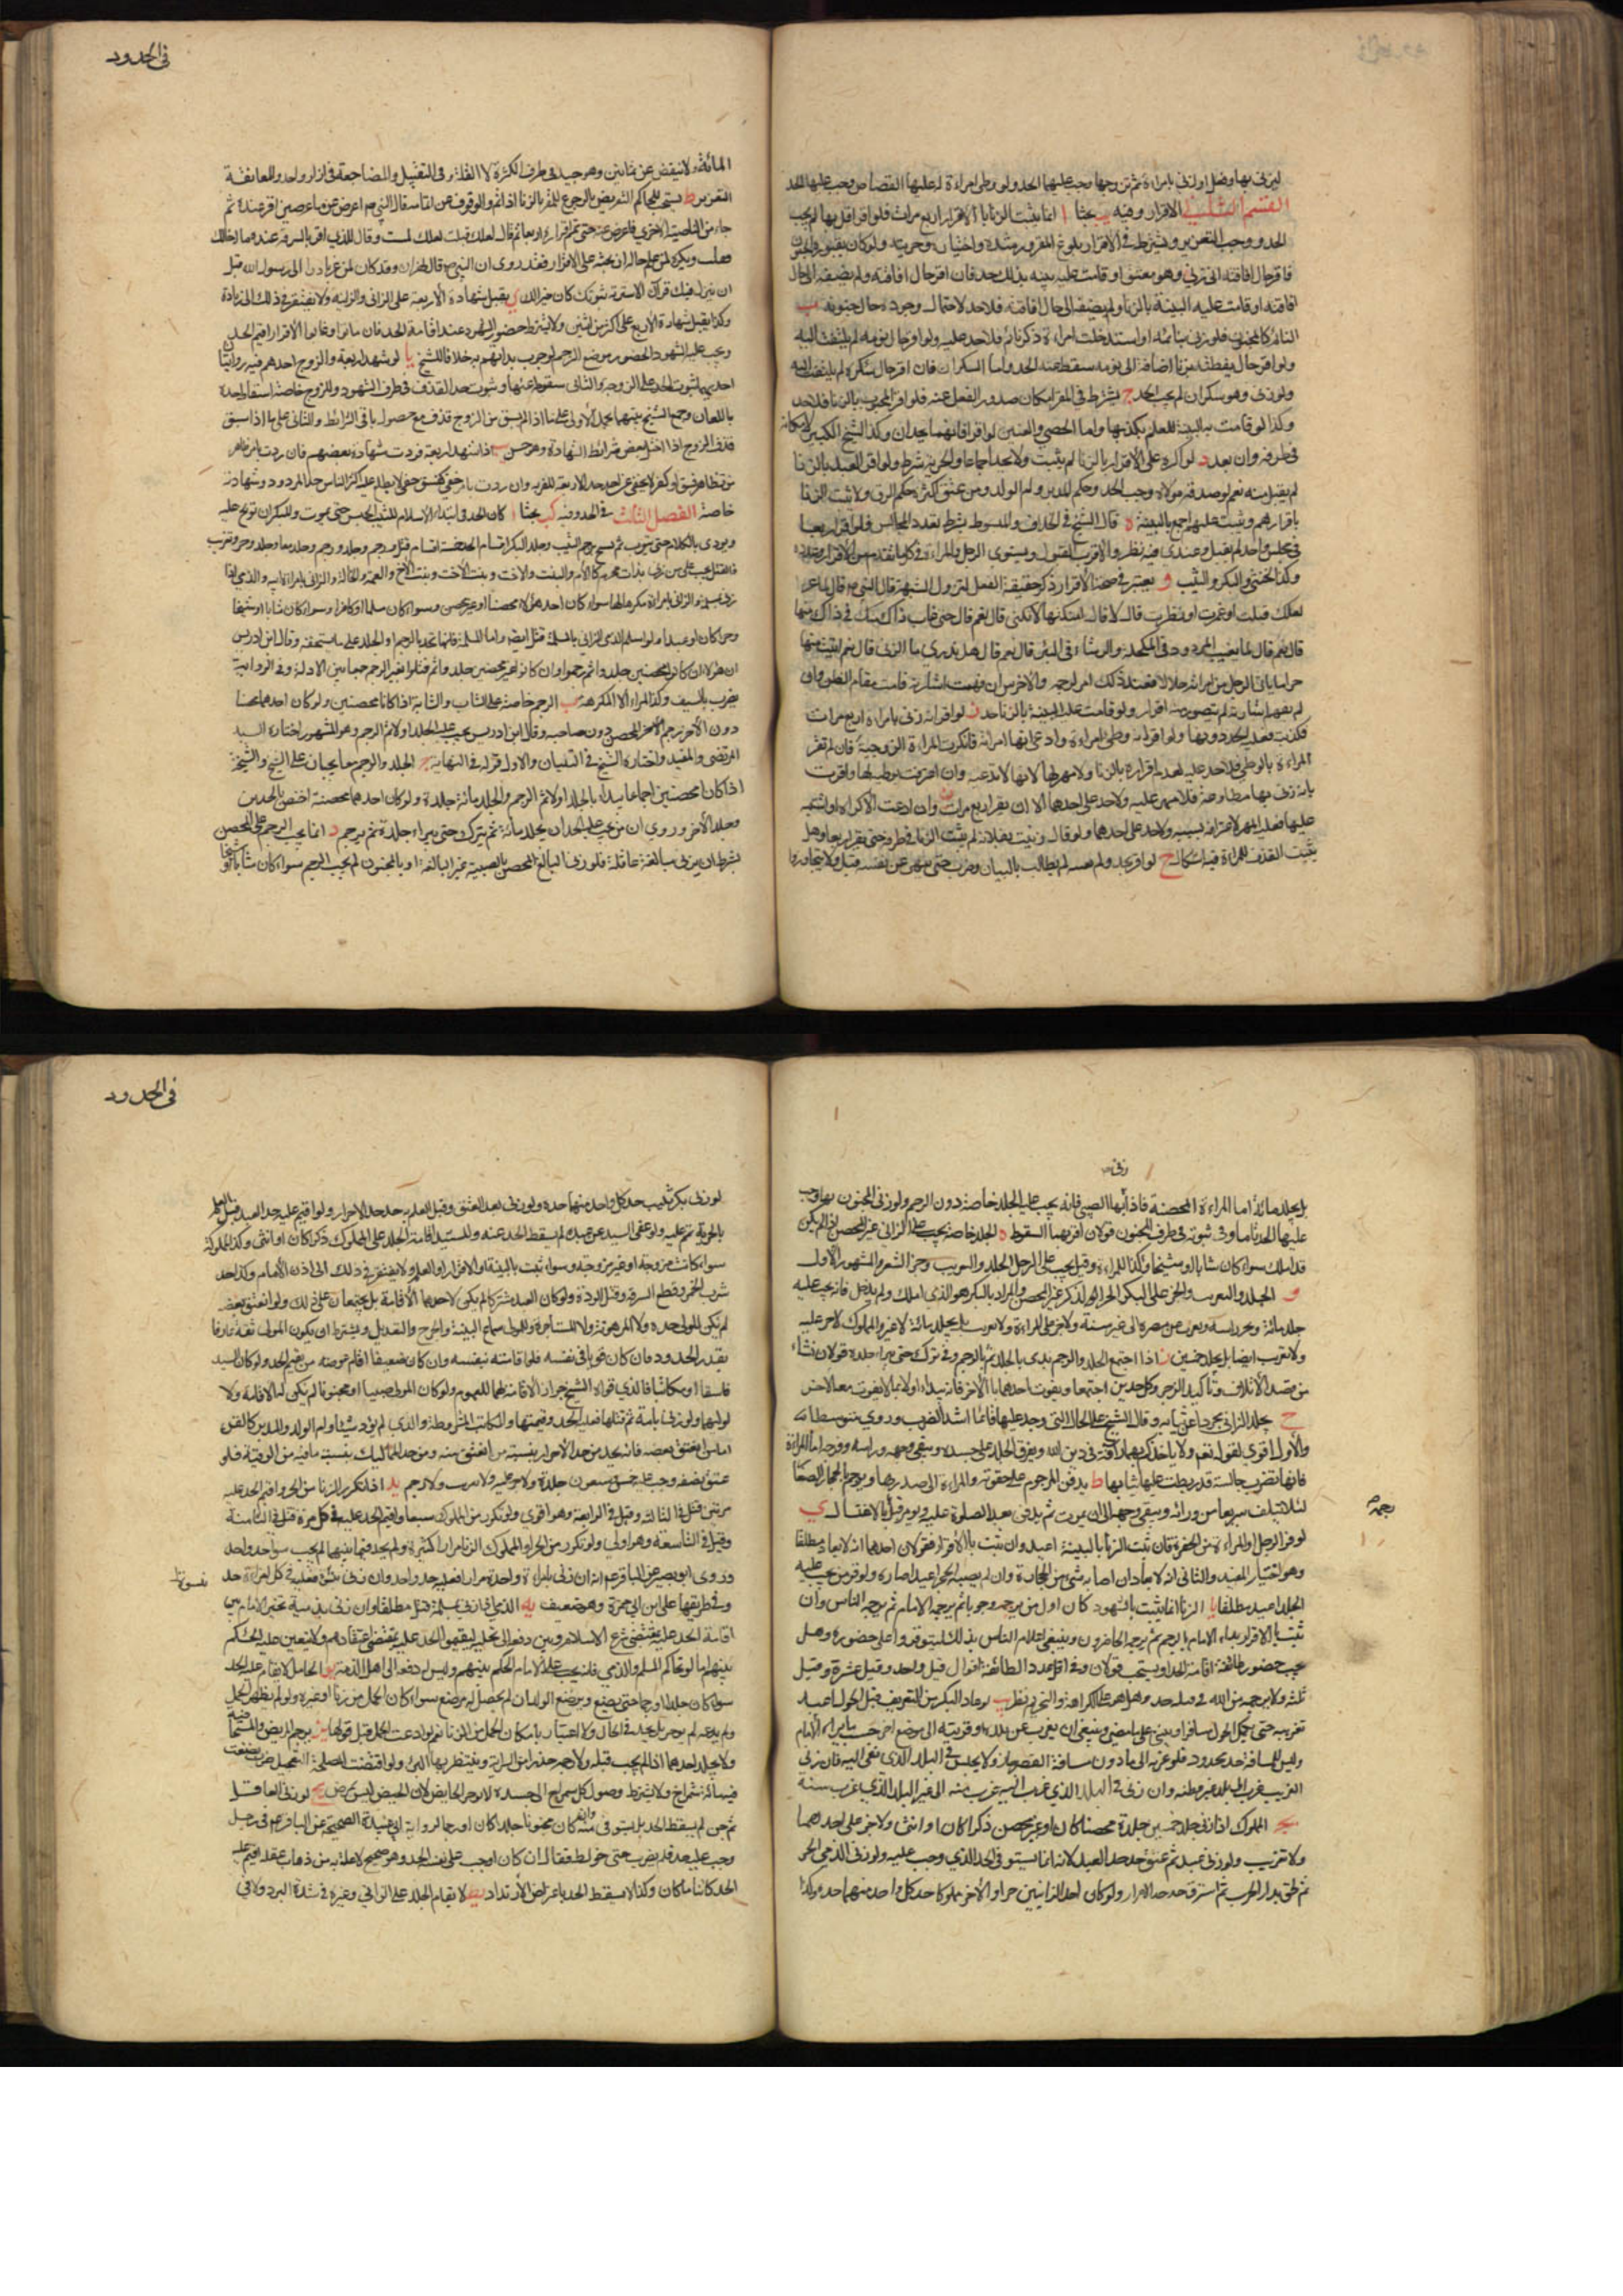 في الحدود
ليزني بها وفعل او زنى بامراءة ثم تزوجها وجب عليهما الحد ولو وطى امراءة له عليها القصاص وجب عليه الحد
الاقرار وفيه بحثا ا انما يثبت الزنا بالاقرار اربع مرات فلو اقر اقل بها لم يجب
الحد ووجب التعزير ويشترط في الاقرار بلوغ المقر ورشده واختياره وحريته ولو كان يفيق ويجن
فاقر حال افاقته انه زنى وهو مفيق او قامت عليه بينة بذلك حد فان اقر حال افاقته ولم يضفه الى حال
افاقته او قامت عليه البينة بالزنا ولم يضفه الى حال افاقته فلا حد لاحتمال وجوده حال جنونه ب
النائم كالمجنون فلو زنى بنائمة او استدخلت امراءة ذكر نائم فلا حد عليه ولو اقر حال نومه لم يلتفت اليه
ولو اقر حال يقظته بزنا اضافه الى نومه سقط عنه الحد واما السكران فان اقر حال سكره لم يلتفت اليه
ولو زنى وهو سكران لم يجب الحد ج يشترط في المقر امكان صدور الفعل عنه فلو اقر المجبوب بالزنا فلا حد
وكذا لو قامت به البينة للعلم بكذبها واما الخصي والعنين لو اقرا فانهما يحدان وكذا الشيخ الكبير لامكانه
في طرفه وان بعد د لو اكره على الاقرار بالزنا لم يثبت ولا يحد اجماعا والحرية شرط ولو اقر العبد بالزنا
لم يقبل منه نعم لو صدقه مولاه وجب الحد وحكم المدبر وام الولد ومن عتق اكثره حكم الرق ولا يثبت الزنا
باقرارهم ويثبت عليهم اجمع بالبينة ه قال الشيخ في الخلاف والمبسوط يشترط تعدد المجالس فلو اقر اربعا
في مجلس واحد لم يقبل وعندي فيه نظر والاقرب القبول ويستوي الرجل والمراءة في كلما تقدم من الاقرار وعدده
وكذا الخنثى والبكر والثيب و يعتبر في صحة الاقرار ذكر حقيقة الفعل لتزول الشبهة قال النبي ص لماعز
لعلك قبلت او غمزت او نظرت قال لا قال انكتها لا تكني قال نعم قال حتى غاب ذاك منك في ذاك منها
قال نعم قال كما يغيب المرود في المكحلة والرشاء في البئر قال نعم قال هل تدري ما الزنى قال نعم اتيت منها
حراما ما ياتي الرجل من امراته حلالا فعند ذلك امر برجمه والاخرس ان فهمت اشارته قامت مقام النطق وان
لم يفهم اشارته لم يتصور منه اقرار ولو قامت عليه البينة بالزنا حد ز لو اقر انه زنى بامراءة اربع مرات
فكذبته فعليه الحد دونها ولو اقر انه وطى امراءة وادعى انها امراته فانكرت المراءة الزوجية فان لم تقر
المراءة بالوطي فلا حد عليه لعدم اقراره بالزنا ولا مهر لها لانها لا تدعيه وان اعترفت بوطيه لها واقرت
بانه زنى بها مطاوعة فلا مهر عليه ولا حد على احدهما الا ان يقر اربع مرات وان ادعت الاكراه او الشبهة
عليها فعليه المهر لاعترافه بسببه ولا حد على احدهما ولو قال زنيت بفلانة لم يثبت الزنا في طرفه حتى يقر اربعا وهل
يثبت القذف للمراءة فيه اشكال ح لو اقر بحد ولم يفسره لم يطالب بالبيان وضرب حتى ينهى عن نفسه قيل ولا يتجاوز
المائة ولا ينقص عن ثمانين وهو جيد في طرف الكثرة لا القلة وفي التقبيل والمضاجعة في ازار واحد والمعانقة
التعزير ط يستحب للحاكم التعريض بالرجوع للمقر بالزنا اذا تم والوقوف عن اتمامه فان النبي ص اعرض عن ماعز حين اقر عنده ثم
جاء من الناحية الاخرى فاعرض عنه حتى تمم اقراره اربعا ثم قال لعلك قبلت لعلك لمست وقال للذي اقر بالسرقة عنده ما اخالك
فعلت ويكره لمن علم حاله ان يحثه على الاقرار فقد روي ان النبي ص قال لهزال وقد كان لمن عز بادر الى رسول الله قبل
ان ينزل فيك قرآن الا سترته بثوبك كان خيرا لك ي يقبل شهادة الاربعة على الزاني والزانية ولا يفتقر في ذلك الى زيادة
وكذا يقبل شهادة الاربع على اكثر من اثنين ولا يشترط حضور الشهود عند اقامة الحد فان ماتوا او غابوا الاقرار اقيم الحد
ويجب على الشهود الحضور موضع الرجم لوجوب بداتهم به خلافا للشيخ يا لو شهد اربعة والزوج احدهم فيه روايتان
احديهما ثبوت الحد على الزوجة والثاني سقوطه عنها وثبوت حد القذف في طرف الشهود وللزوج خاصة اسقاط حده
باللعان وجمع الشيخ بينهما بحمل الاولى على ما اذا لم يسبق من الزوج قذف مع حصول باقي الشرائط والثاني على ما اذا سبق
قذف الزوج او اختل بعض شرائط الشهادة وهو حسن يب اذا شهد اربعة فردت شهادة بعضهم فان ردت بامر ظاهر
خاصة الفصل الثالث في الحد وفيه كب بحثا ا كان الحد في ابتداء الاسلام للثيب الحبس حتى يموت وللبكر ان توبخ عليه
ويوذى بالكلام حتى يتوب ثم نسخ برجم الثيب وجلد البكر اقسام الحد خمسة اقسام قتل ورجم وجلد ورجم وجلد معا وجلد وجز وتغريب
فالقتل يجب على من زنى بذات محرم كالام والبنت والاخت وبنت الاخت وبنت الاخ والعمة والخالة والزاني بامراة ابيه والذمي اذا
زنى بمسلمة والزاني بامراءة مكرها لها سواء كان احد هؤلاء محصنا او غير محصن وسواء كان مسلما او كافرا وسواء كان شابا او شيخا
وحرا كان او عبدا ولو اسلم الذمي الزاني بالمسلمة قتل ايضا واما المسلمة فانها تحد بالرجم او الجلد على ما تستحقه وقال ابن ادريس
ان هؤلاء ان كانوا محصنين جلدوا ثم رجموا وان كانوا غير محصنين جلدوا ثم قتلوا بغير الرجم جمعا بين الادلة وفي الرواية
يضرب بالسيف وكذا المراءة الا المكرهة ب الرجم خاصة على الشاب والشابة اذا كانا محصنين ولو كان احدهما محصنا
دون الآخر رجم المحصن دون صاحبه وقال ابن ادريس يجب عليه الجلد اولا ثم الرجم وهو المشهور اختاره السيد
المرتضى والمفيد واختاره الشيخ في التبيان والاول قوله في النهاية ج الجلد والرجم معا يجبان على الشيخ والشيخة
اذا كانا محصنين اجماعا يبداء بالجلد اولا ثم الرجم والجلد مائة جلدة ولو كان احدهما محصنة اختص بالحدين
وجلد الآخر وروي ان من يجب عليه الحدان يجلد مائة ثم يترك حتى يبراء جلده ثم يرجم د انما يجب الرجم على المحصن
بشرط ان يزني ببالغة عاقلة فلو زنى البالغ المحصن بالصبية غير البالغة او بالمجنون لم يجب الرجم سواء كان شابا او شيخا
في الحدود
زنى
بل يجلد مائة اما المراءة المحصنة فاذا زنى بها الصبي فانه يجب عليها الجلد خاصة دون الرجم ولو زنى المجنون بها وجب
عليها الحد تاما وفي ثبوته في طرف المجنون قولان اقربهما السقوط ه الجلد خاصة يجب على الزاني غير المحصن اذا لم يكن
قد املك سواء كان شابا او شيخا وكذا المراءة وقيل يجب على الرجل الجلد والتغريب وجز الشعر والمشهور الاول
و الجلد والتغريب والجز على البكر الحر الذكر غير المحصن والمراد بالبكر هو الذي املك ولم يدخل فانه يجب عليه
جلد مائة ويجز راسه ويغرب عن مصره الى غيره سنة ولا جز على المراءة ولا تغريب بل يجلد مائة لا غير والمملوك لا جز عليه
ولا تغريب ايضا بل يجلد خمسين ز اذا اجتمع الجلد والرجم بدئ بالجلد ثم بالرجم وفي تركه حتى يبراء جلده قولان نشاء
من قصد الاتلاف وتاكيد الزجر وكل حدين اجتمعا ويفوت احدهما بالآخر فانه يبداء اولا بما لا يفوت معه الآخر
ح يجلد الزاني مجردا عن ثيابه وقال الشيخ على الحال التي وجد عليها قائما اشد الضرب وروي متوسطا
والاول اقوى لقوله تعم ولا ياخذكم بهما رافة في دين الله ويفرق الجلد على جسده ويتقى وجهه وراسه وفرجه اما المراءة
فانها تضرب جالسة قد ربطت عليها ثيابها ط يدفن المرجوم على حقوته والمراءة الى صدرها ويرجم بالحجار الصغار
لئلا يتلف سريعا من ورائه ويتقى وجهه الى ان يموت ثم يدفن بعد الصلوة عليه ويومر قبلا بالاغتسال ي
رجمه
لو فر الرجل او المراءة من الحفرة فان ثبت الزنا بالبينة اعيد وان ثبت بالاقرار فقولان احدهما انه لا يعاد مطلقا
وهو اختيار المفيد والثاني انه لا يعاد ان اصابه شئ من الحجارة وان لم يصبه الحجر اعيد اصاره ولو فر من يجب عليه
الجلد اعيد مطلقا يا الزنا ان ثبت بالشهود كان اول من يرجمه وجوبا ثم يرجمه الامام ثم يرجمه الناس وان
ثبت بالاقرار بداء الامام بالرجم ثم يرجمه الحاضرون وينبغي اعلام الناس بذلك ليتوفروا على حضوره وهل
يجب حضور طائفة اقامة الحد او يستحب قولان وفي اقل عدد الطائفة اقوال قيل واحد وقيل عشرة وقيل
ثلثة ولا يرجمه من الله في قبله حد وهل هو على الكراهة او التحريم نظر يب لو عاد البكر من التغريب قبل الحول اعيد
تغريبه حتى يكمل الحول مسافرا ويبنى على ما مضى وينبغي ان يغرب عن بلده او قريته الى موضع آخر حسب ما يراه الامام
وليس للمسافة حد محدود فلو غربه الى ما دون مسافة القصر جاز ولا يحبس في البلد الذي نفي اليه فان زنى
الغريب غرب الى بلد غير وطنه وان زنى في البلد الذي غرب اليه غرب منه الى غير البلد الذي غرب منه
يج المملوك اذا زنى جلد خمسين جلدة محصنا كان او غير محصن ذكرا كان او انثى ولا جز على احدهما
ولا تغريب ولو زنى عبد ثم عتق حد حد العبد لانه انما يستوفى الحد الذي وجب عليه ولو زنى الذمي الحر
ثم لحق بدار الحرب ثم استرق حد حد الاحرار ولو كان احد الزانيين حرا والآخر مملوكا حد كل واحد منهما حده وكذا
لو زنى بكر بثيب حد كل واحد منهما حده ولو زنى بعد العتق وقبل العلم به حد حد الاحرار ولو اقيم عليه حد العبد قبل العلم
بالحرية تمم عليه ولو عفى السيد عن عبده لم يسقط الحد عنه وللسيد اقامة الجلد على المملوك ذكرا كان او انثى وكذا المملوكة
سواء كانت مزوجة او غير مزوجة وسواء ثبت بالبينة او الاقرار او العلم ولا يفتقر في ذلك الى اذن الامام وكذا حد
شرب الخمر وقطع السرقة وقتل الردة ولو كان العبد مشتركا لم يكن لاحدهما الاقامة بل يجتمعان على ذلك ولو انعتق بعضه
لم يكن للمولى حده ولا المرهونة ولا المستاجرة وللمولى سماع البينة والجرح والتعديل ويشترط ان يكون المولى ثقة عارفا
بقدر الحدود فان كان قويا في نفسه فله اقامته بنفسه وان كان ضعيفا اقام عوضه من يقيم الحد ولو كان السيد
فاسقا او مكاتبا فالذي قواه الشيخ جواز الاقامة لهما للعموم ولو كان المولى صبيا او مجنونا لم يكن له الاقامة ولا
لوليهما ولو زنى بامة ثم قتلها فعليه الحد وقيمتها والمكاتب المشروطة والذي لم يؤد شيئا وام الولد والمدبر كالقن
اما من انعتق بعضه فانه يحد من حد الاحرار بنسبة ما انعتق منه ومن حد المماليك بنسبة ما فيه من الرقية فلو
عتق نصفه وجب عليه خمس وسبعون جلدة ولا جز عليه ولا تغريب ولا رجم يد اذا تكرر الزنا من الحر واقيم الحد عليه
مرتين قتل في الثالثة وقيل في الرابعة وهو اقوى ولو تكرر من المملوك سبعا واقيم الحد عليه في كل مرة قتل في الثامنة
وقيل في التاسعة وهو اولى ولو تكرر من الحر او المملوك الزنا مرارا كثيرة ولم يحد فيما بينهما لم يجب سوى حد واحد
وروى ابو بصير عن الباقر عم انه ان زنى بامراءة واحدة مرارا فعليه حد واحد وان زنى بنسوة فعليه في كل امراءة حد
نسوة
وفي طريقها علي بن ابي حمزة وهو ضعيف يه الذمي اذا زنى بمسلمة قتل مطلقا وان زنى بذمية تخير الامام بين
اقامة الحد عليه بمقتضى شرع الاسلام وبين دفعه الى اهل نحلته ليقيموا الحد عليه بمقتضى اعتقادهم ولا يتعين عليه الحكم
بينهم اما لو تحاكم المسلم والذمي فانه يجب على الامام الحكم بينهم وليس له دفعه الى اهل الذمة يو الحامل لا يقام عليها الحد
سواء كان جلدا او رجما حتى تضع وترضع الولد ان لم يحصل له مرضع سواء كان الحمل من زنا او غيره ولو لم يظهر الحمل
ولم تدعه لم يوخر بل يحد في الحال ولا اعتبار بامكان الحمل من الزنا نعم لو ادعت الحمل قبل قولها يز يرجم المريض والمستحاضة
ولا يجلد احدهما اذا لم يجب قتله ولا رجمه حذرا من السراية وينتظر بهما البرء ولو اقتضت المصلحة التعجيل ضرب بضغث
فيه مائة شمراخ ولا يشترط وصول كل شمراخ الى جسده ولا يوخر الحائض لان الحيض ليس بمرض يح لو زنى العاقل
ثم جن لم يسقط الحد بل يستوفى منه وانه كان مجنونا جلدا كان او رجما لرواية ابي عبيدة الصحيحة عن الباقر عم في رجل
وجب عليه حد فلم يضرب حتى خولط فقال ان كان اوجب على نفسه الحد وهو صحيح لا علة به من ذهاب عقله اقيم عليه
الحد كائنا ما كان وكذا لا يسقط الحد باعتراض الارتداد يط لا يقام الجلد على الزاني وغيره في شدة البرد ولا في